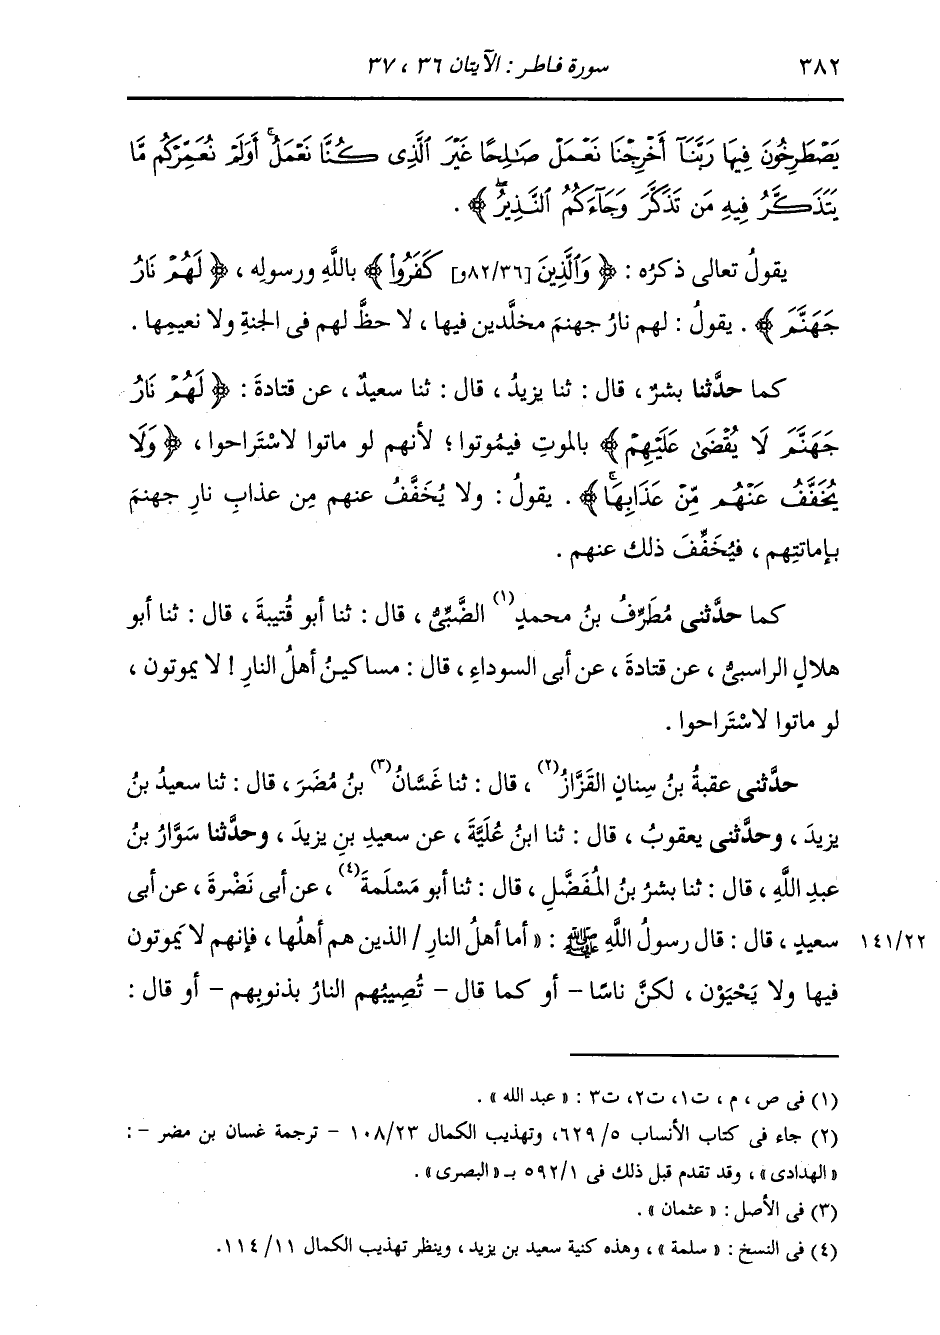 ٣٨٢ سورة فاطر : الآيتان ٣٦ ، ٣٧
يَصْطَرِخُونَ فِيهَا رَبَّنَآ أَخْرِجْنَا نَعْمَلْ صَٰلِحًا غَيْرَ ٱلَّذِى كُنَّا نَعْمَلُ ۚ أَوَلَمْ نُعَمِّرْكُم مَّا
يَتَذَكَّرُ فِيهِ مَن تَذَكَّرَ وَجَآءَكُمُ ٱلنَّذِيرُ ۖ ﴾ .
يقولُ تعالى ذكرُه : ﴿ وَٱلَّذِينَ [٨٢/٣٦و] كَفَرُوا۟ ﴾ باللَّهِ ورسولِه ، ﴿ لَهُمْ نَارُ
جَهَنَّمَ ﴾ . يقولُ : لهم نارُ جهنمَ مخلَّدين فيها ، لا حظَّ لهم فى الجنةِ ولا نعيمِها .
كما حدَّثنا بشرٌ ، قال : ثنا يزيدُ ، قال : ثنا سعيدٌ ، عن قتادةَ : ﴿ لَهُمْ نَارُ
جَهَنَّمَ لَا يُقْضَىٰ عَلَيْهِمْ ﴾ بالموتِ فيمُوتوا ؛ لأنهم لو ماتوا لاسْتَراحوا ، ﴿ وَلَا
يُخَفَّفُ عَنْهُم مِّنْ عَذَابِهَا ۚ ﴾ . يقولُ : ولا يُخَفَّفُ عنهم مِن عذابِ نارِ جهنمَ
بإماتتِهم ، فيُخَفِّفَ ذلك عنهم .
كما حدَّثنى مُطَرِّفُ بنُ محمدٍ(١) الضَّبِّىُّ ، قال : ثنا أبو قُتيبةَ ، قال : ثنا أبو
هلالٍ الراسبىُّ ، عن قتادةَ ، عن أبى السوداءِ ، قال : مساكينُ أهلُ النارِ ! لا يموتون ،
لو ماتوا لاسْتَراحوا .
حدَّثنى عقبةُ بنُ سِنانٍ القَزَّازُ(٢) ، قال : ثنا غَسَّانُ(٣) بنُ مُضَرَ ، قال : ثنا سعيدُ بنُ
يزيدَ ، وحدَّثنى يعقوبُ ، قال : ثنا ابنُ عُلَيَّةَ ، عن سعيدِ بنِ يزيدَ ، وحدَّثنا سَوَّارُ بنُ
عبدِ اللَّهِ ، قال : ثنا بشرُ بنُ المُفَضَّلِ ، قال : ثنا أبو مَسْلَمةَ(٤) ، عن أبى نَضْرةَ ، عن أبى
سعيدٍ ، قال : قال رسولُ اللَّهِ ﷺ : « أما أهلُ النارِ / الذين هم أهلُها ، فإنهم لا يَموتون ١٤١/٢٢
فيها ولا يَحْيَوْن ، لكنَّ ناسًا - أو كما قال - تُصِيبُهم النارُ بذنوبِهم - أو قال :
(١) فى ص ، م ، ت١، ت٢، ت٣ : « عبد الله » .
(٢) جاء فى كتاب الأنساب ٥/ ٦٢٩، وتهذيب الكمال ١٠٨/٢٣ - ترجمة غسان بن مضر - :
« الهدادى » ، وقد تقدم قبل ذلك فى ٥٩٢/١ بـ « البصرى » .
(٣) فى الأصل : « عثمان » .
(٤) فى النسخ : « سلمة » ، وهذه كنية سعيد بن يزيد ، وينظر تهذيب الكمال ١١/ ١١٤.